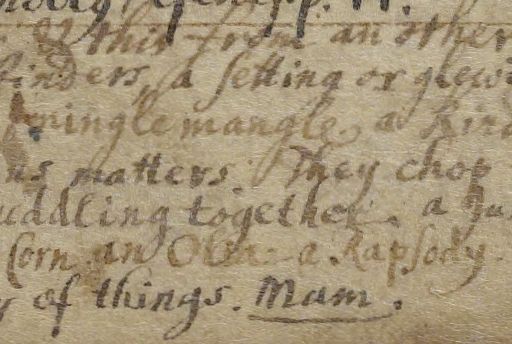 this from an other
binders, a setting or glewi
mingle mangle, a kind
us matters. They chop
uddling together. a Ju
Corn. an Olla. a Rapsody.
of things. Mam.